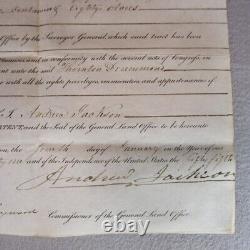 containing eighty acres
Office by the Surveyor General, which said tract has been
and in conformity with the several acts of Congress, in
unto the said Thornton Drummond
with all the rights, privileges, immunities, and appurtenances of
I, Andrew Jackson
PATENT, and the Seal of the General Land Office to be hereunto
the fourth day of January in the Year of our
and of the Independence of the United States the fifty fifth
Andrew Jackson
Commissioner of the General Land Office